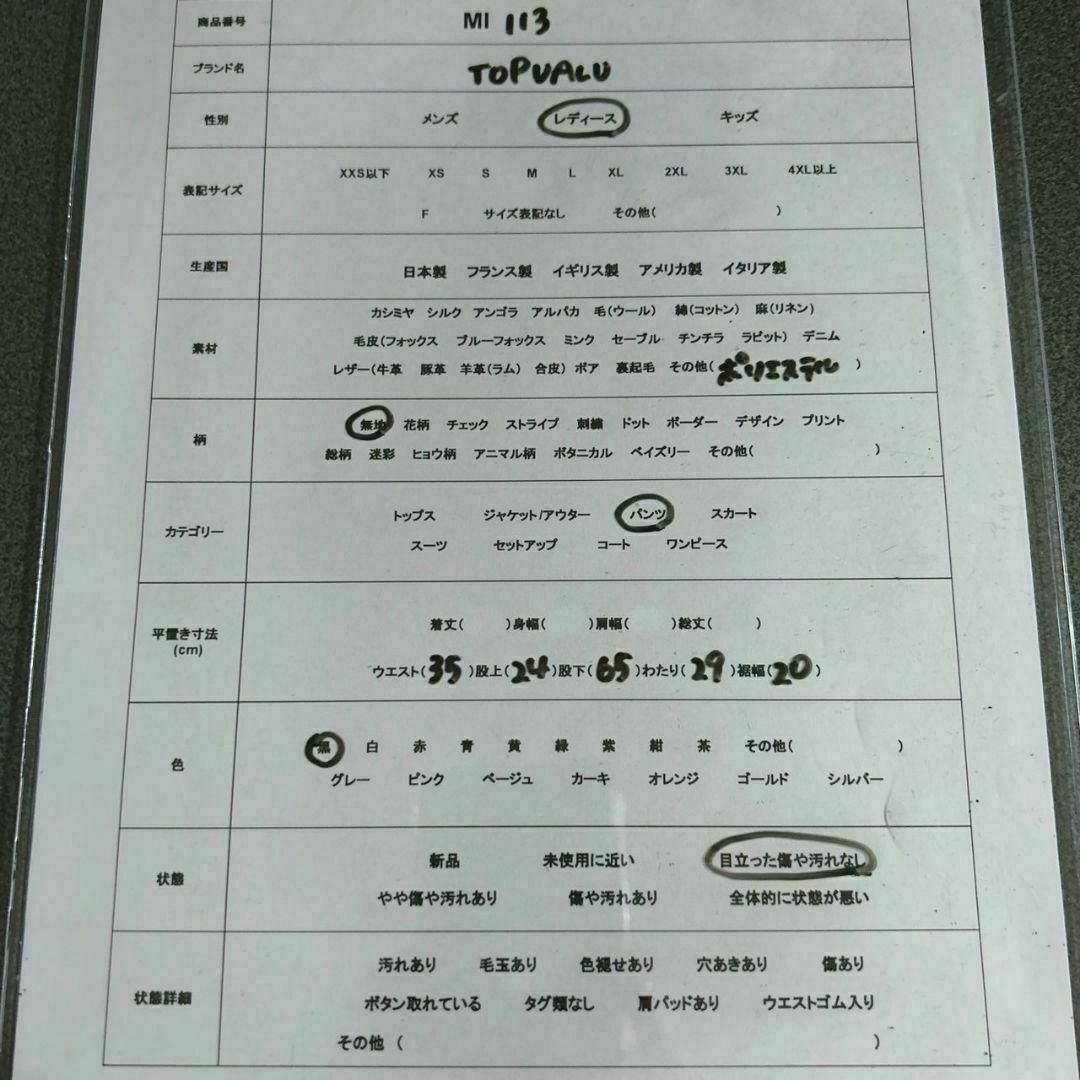 商品番号 MI 113
ブランド名 TOPVALU
性別 メンズ レディース キッズ
XXS以下 XS S M L XL 2XL 3XL 4XL以上
表記サイズ
F サイズ表記なし その他( )
生産国 日本製 フランス製 イギリス製 アメリカ製 イタリア製
カシミヤ シルク アンゴラ アルパカ 毛(ウール) 綿(コットン) 麻(リネン)
素材 毛皮(フォックス ブルーフォックス ミンク セーブル チンチラ ラビット) デニム
レザー(牛革 豚革 羊革(ラム) 合皮) ボア 裏起毛 その他(ポリエステル)
無地 花柄 チェック ストライプ 刺繍 ドット ボーダー デザイン プリント
柄
総柄 迷彩 ヒョウ柄 アニマル柄 ボタニカル ペイズリー その他( )
トップス ジャケット/アウター パンツ スカート
カテゴリー
スーツ セットアップ コート ワンピース
着丈( )身幅( )肩幅( )総丈( )
平置き寸法
(cm)
ウエスト(35)股上(24)股下(65)わたり(29)裾幅(20)
黒 白 赤 青 黄 緑 紫 紺 茶 その他( )
色
グレー ピンク ベージュ カーキ オレンジ ゴールド シルバー
新品 未使用に近い 目立った傷や汚れなし
状態
やや傷や汚れあり 傷や汚れあり 全体的に状態が悪い
汚れあり 毛玉あり 色褪せあり 穴あきあり 傷あり
状態詳細 ボタン取れている タグ類なし 肩パッドあり ウエストゴム入り
その他 ( )